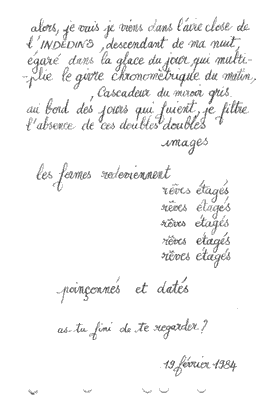 alors, je vais je viens dans l'aire close de
l'INDEDINS, descendant de ma nuit,
égaré dans la glace du jour qui multi-
-plie le givre chronométrique du matin,
, Cascadeur du miroir gris.
au bord des jours qui fuient, je filtre
l'absence de ces doubles doublés
images
les formes redeviennent
rêves étagés
rêves étagés
rêves étagés
rêves étagés
rêves étagés
poinçonnés et datés
as-tu fini de te regarder ?
19 février 1984